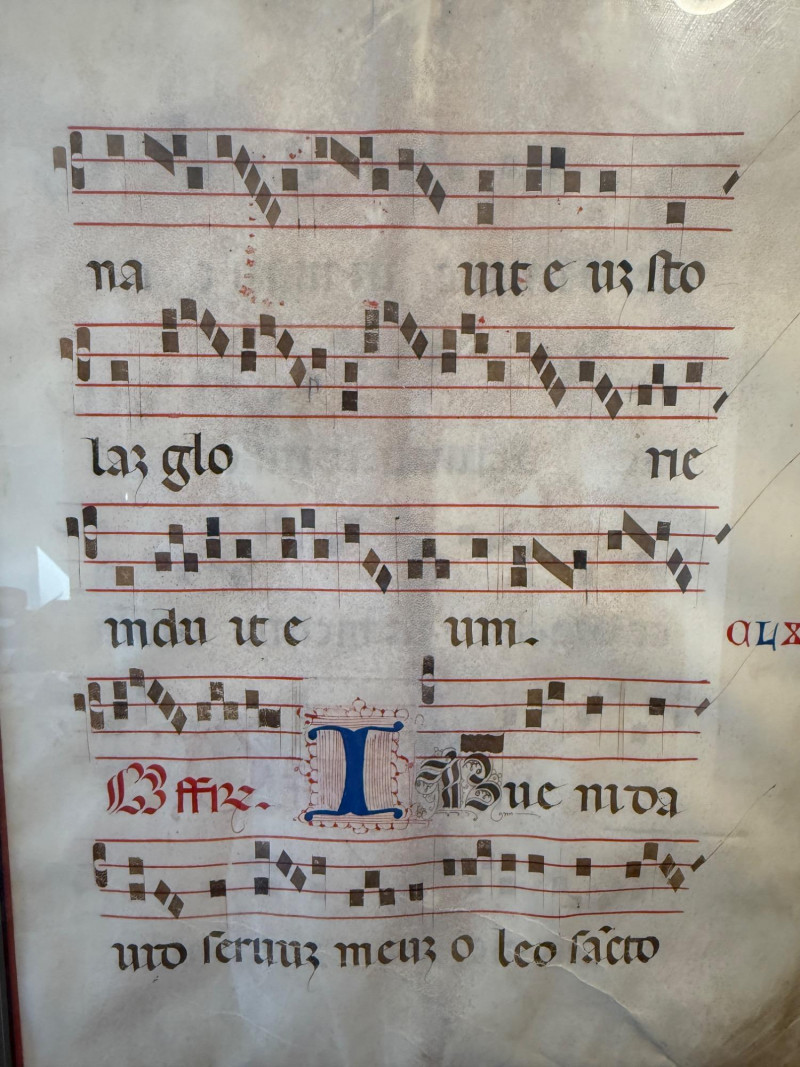 na uit e uꝫ sto
laꝫ glo rie
indu it e um.
CLX
Offꝛꝫ. INue ni da
uid seruuꝫ meuꝫ o leo sācto